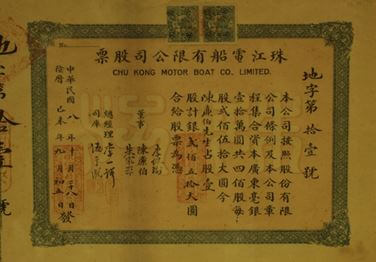 珠江電船有限公司股票
CHU KONG MOTOR BOAT CO., LIMITED.
No.
地字第拾壹號
本公司按照股份有限
公司條例及本公司章
程集合資本廣東毫銀
壹拾萬圓共四佰股每
股弍佰伍拾大圓今
陳廉伯先生占股壹
股計銀弍佰五拾大圓
合給股票為憑
董事
陳廉伯
總經理
司庫
中華民國八年
陰曆己未年九月初五日發